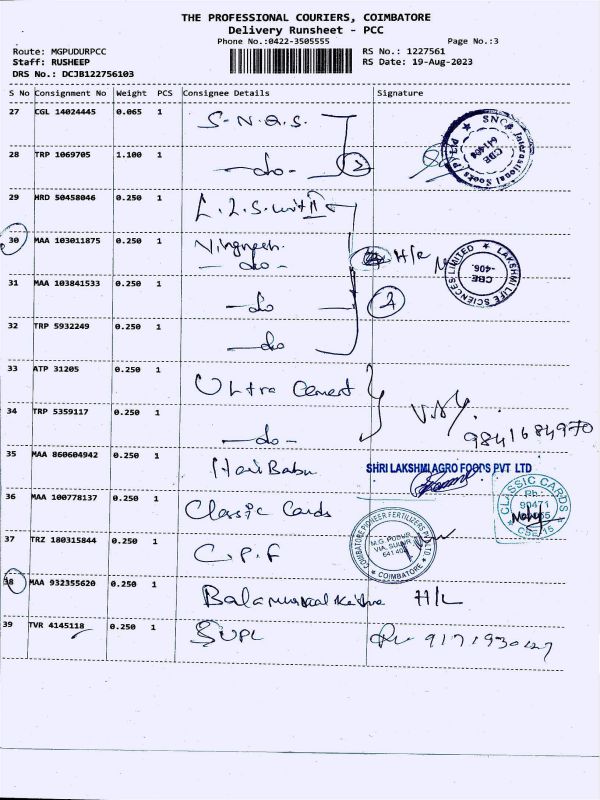 THE PROFESSIONAL COURIERS, COIMBATORE
Delivery Runsheet - PCC
Phone No.:0422-3505555 Page No.:3
Route: MGPUDURPCC RS No.: 1227561
Staff: RUSHEEP RS Date: 19-Aug-2023
DRS No.: DCJB122756103
S No Consignment No Weight PCS Consignee Details Signature
27 CGL 14024445 0.065 1 S.N.Q.S.
28 TRP 1069705 1.100 1 -do- 2
29 HRD 50458046 0.250 1 L.L.S. unit II
30 MAA 103011875 0.250 1 H/R
-do-
31 MAA 103841533 0.250 1 -do-
32 TRP 5932249 0.250 1 -do-
33 ATP 31205 0.250 1 Ultra Cement
34 TRP 5359117 0.250 1 -do- 9841684970
35 MAA 860604942 0.250 1 Hari Babu SHRI LAKSHMI AGRO FOODS PVT LTD
36 MAA 100778137 0.250 1 Classic Cards CLASSIC CARDS
CBE 15
37 TRZ 180315844 0.250 1 C.P.F COIMBATORE PIONEER FERTILIZERS PVT LTD
M.G. PUDUR
VIA, SULUR
COIMBATORE
38 MAA 932355620 0.250 1 H/L
39 TVR 4145118 0.250 1 SUPL
SNQS International Socks Pvt Ltd
CBE
LAKSHMI LIFE SCIENCES LIMITED
CBE
-406.